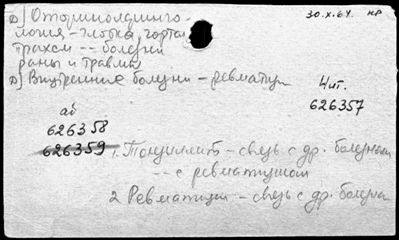 д) Отоларинголо-
логия – глотка, гортань
трахея -- болезни
раны и травмы
30.X.64. нр
д) Внутренние болезни – ревматизм
Чит.
626357
аб
626358
626359
1. Тонзиллит – связь с др. болезнями
-- с ревматизмом
2 Ревматизм – связь с др. болезн